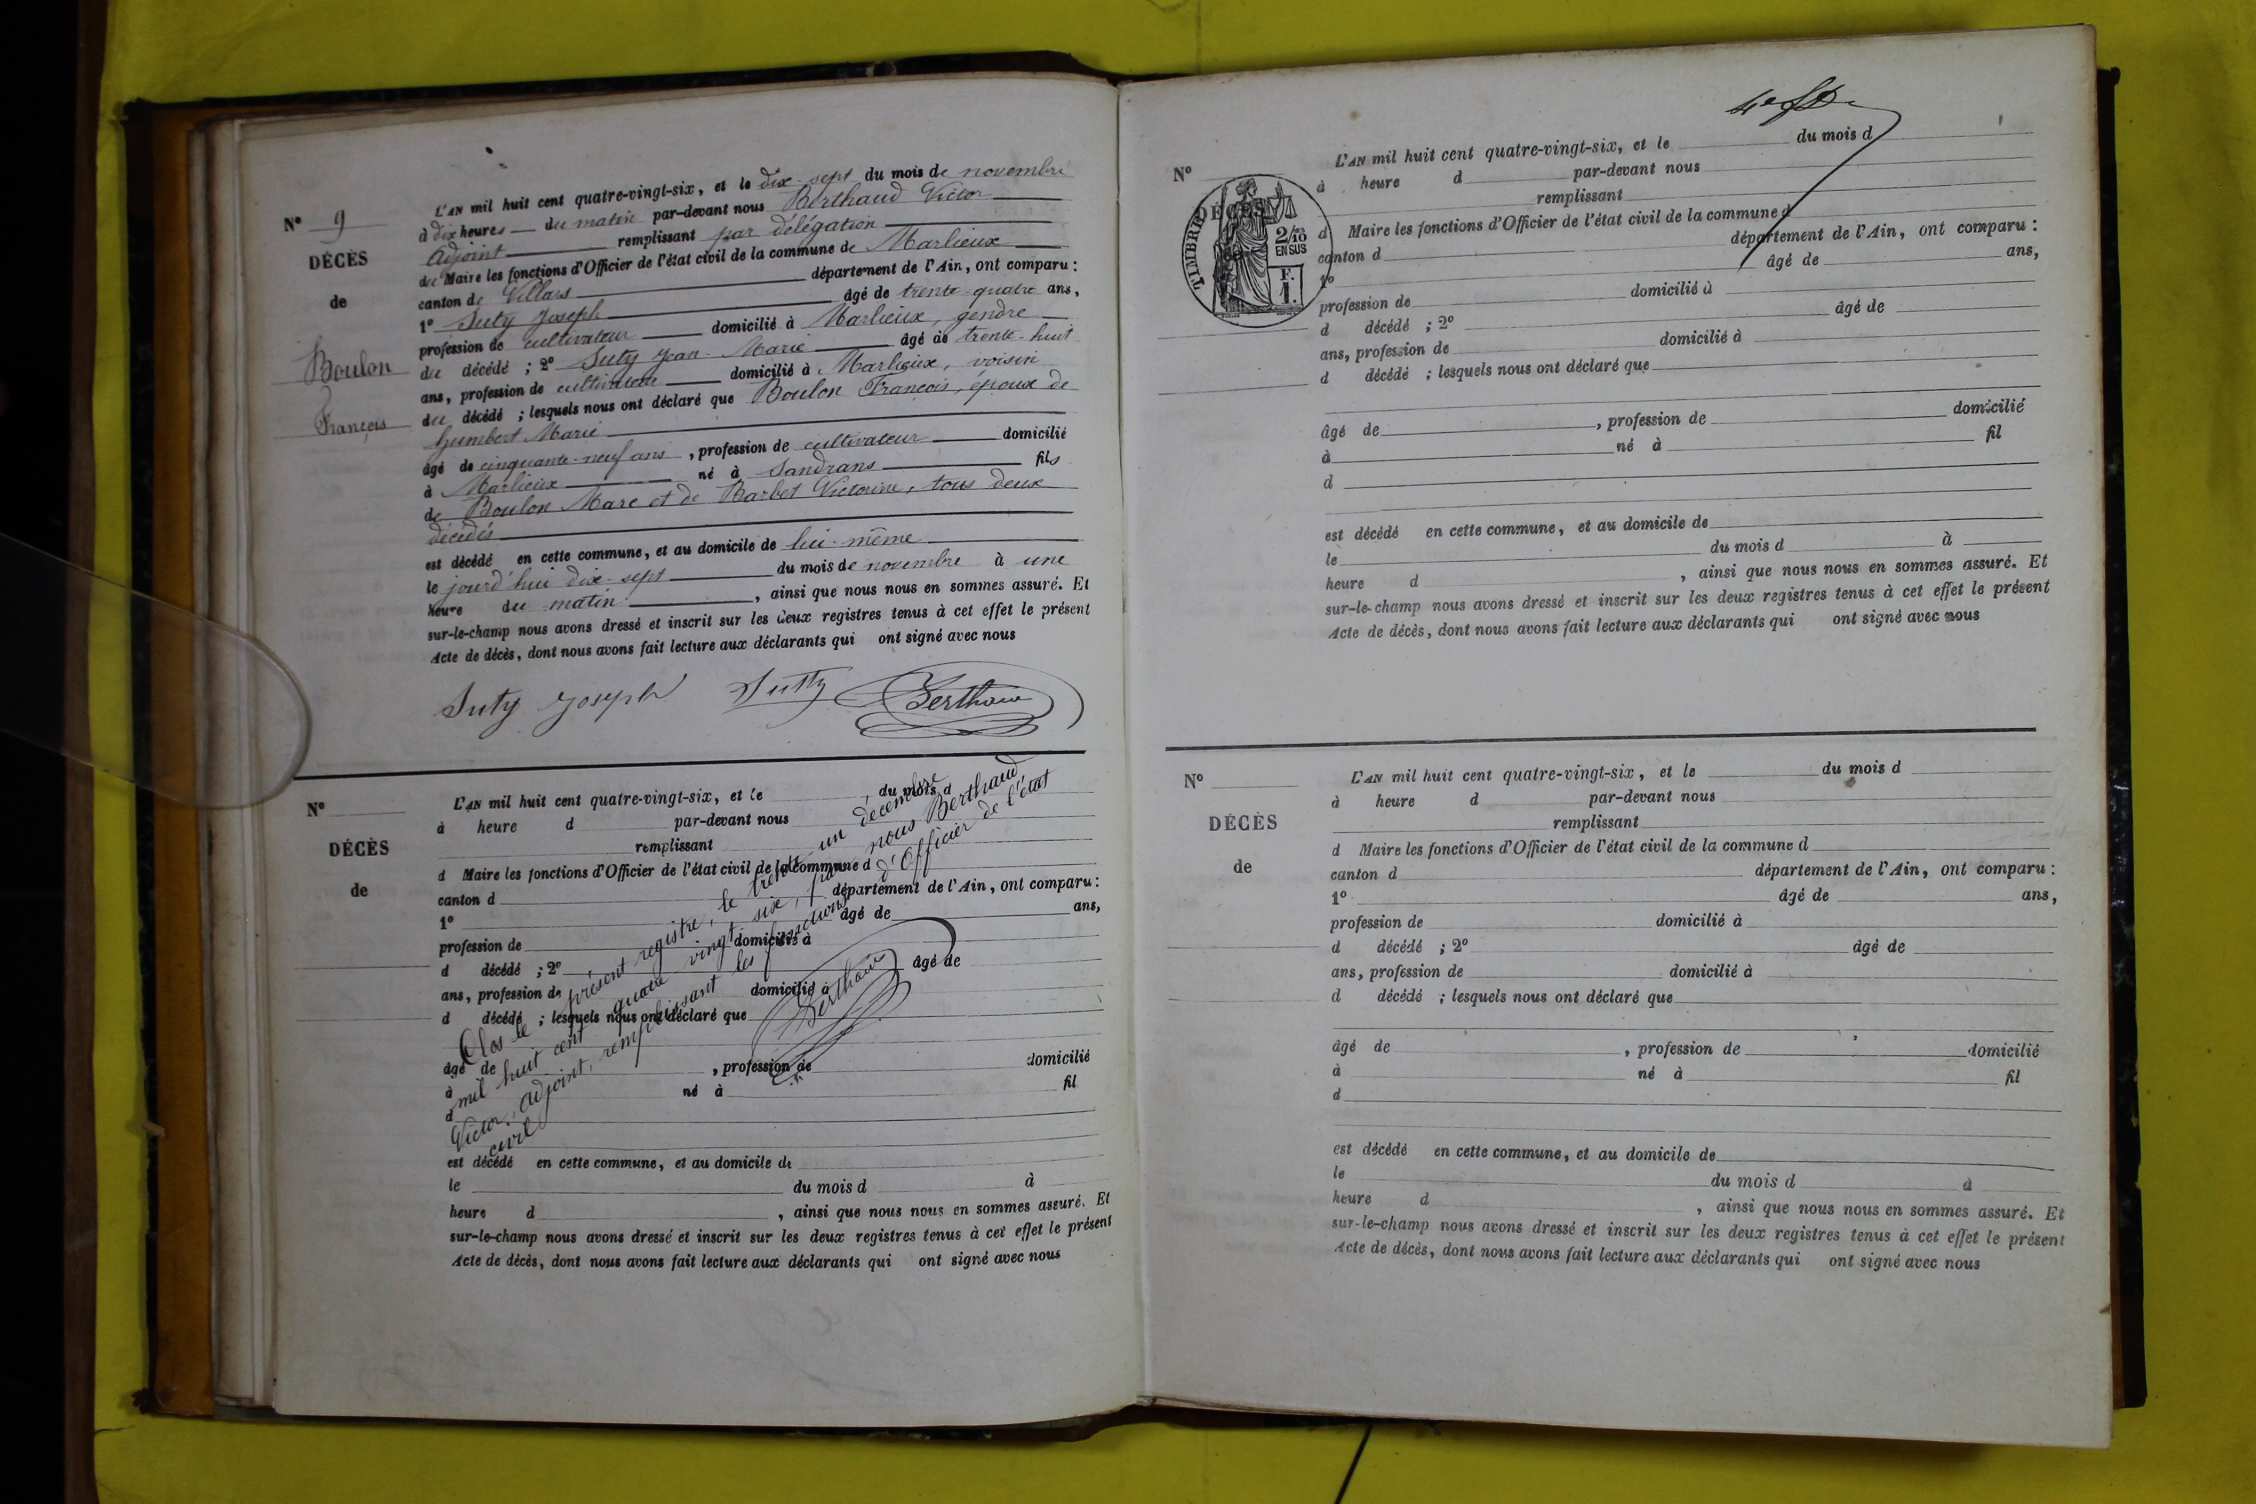 N° 9
DÉCÈS
de
Boulon
François
L'AN mil huit cent quatre-vingt-six, et le dix-sept du mois de novembre
à dix heures du matin par-devant nous Berthaud Victor
Adjoint remplissant par délégation
du Maire les fonctions d'Officier de l'état civil de la commune de Marlieux
canton de Villars département de l'Ain, ont comparu :
1° Suty Joseph âgé de trente-quatre ans,
profession de cultivateur domicilié à Marlieux, gendre
du décédé ; 2° Suty Jean-Marie âgé de trente-huit
ans, profession de cultivateur domicilié à Marlieux, voisin
du décédé ; lesquels nous ont déclaré que Boulon François, époux de
humbert Marie
âgé de cinquante-neuf ans, profession de cultivateur domicilié
à Marlieux né à Sandrans fils
de Boulon Marc et de Barbet Victorine, tous deux
décédés
est décédé en cette commune, et au domicile de lui-même
le jourd'hui dix-sept du mois de novembre à une
heure du matin, ainsi que nous nous en sommes assuré. Et
sur-le-champ nous avons dressé et inscrit sur les deux registres tenus à cet effet le présent
Acte de décès, dont nous avons fait lecture aux déclarants qui ont signé avec nous
Suty Joseph Sutty Berthaud
N°
DÉCÈS
de
L'AN mil huit cent quatre-vingt-six, et le du mois d
à heure d par-devant nous
remplissant
d Maire les fonctions d'Officier de l'état civil de la commune d
canton d département de l'Ain, ont comparu :
1° âgé de ans,
profession de domicilié à
d décédé ; 2° âgé de
ans, profession de domicilié à
d décédé ; lesquels nous ont déclaré que
âgé de , profession de domicilié
à né à fil
d
est décédé en cette commune, et au domicile de
le du mois d à
heure d , ainsi que nous nous en sommes assuré. Et
sur-le-champ nous avons dressé et inscrit sur les deux registres tenus à cet effet le présent
Acte de décès, dont nous avons fait lecture aux déclarants qui ont signé avec nous
Clos le présent registre, le trente-un décembre
mil huit cent quatre vingt six, par nous Berthaud
Victor, adjoint, remplissant les fonctions d'Officier de l'état
civil
Berthaud
N°
DÉCÈS
de
TIMBRE
2/10 EN SUS
F. 1.
L'AN mil huit cent quatre-vingt-six, et le du mois d
à heure d par-devant nous
remplissant
d Maire les fonctions d'Officier de l'état civil de la commune d
canton d département de l'Ain, ont comparu :
1° âgé de ans,
profession de domicilié à
d décédé ; 2° âgé de
ans, profession de domicilié à
d décédé ; lesquels nous ont déclaré que
âgé de , profession de domicilié
à né à fil
d
est décédé en cette commune, et au domicile de
le du mois d à
heure d , ainsi que nous nous en sommes assuré. Et
sur-le-champ nous avons dressé et inscrit sur les deux registres tenus à cet effet le présent
Acte de décès, dont nous avons fait lecture aux déclarants qui ont signé avec nous
N°
DÉCÈS
de
L'AN mil huit cent quatre-vingt-six, et le du mois d
à heure d par-devant nous
remplissant
d Maire les fonctions d'Officier de l'état civil de la commune d
canton d département de l'Ain, ont comparu :
1° âgé de ans,
profession de domicilié à
d décédé ; 2° âgé de
ans, profession de domicilié à
d décédé ; lesquels nous ont déclaré que
âgé de , profession de domicilié
à né à fil
d
est décédé en cette commune, et au domicile de
le du mois d à
heure d , ainsi que nous nous en sommes assuré. Et
sur-le-champ nous avons dressé et inscrit sur les deux registres tenus à cet effet le présent
Acte de décès, dont nous avons fait lecture aux déclarants qui ont signé avec nous